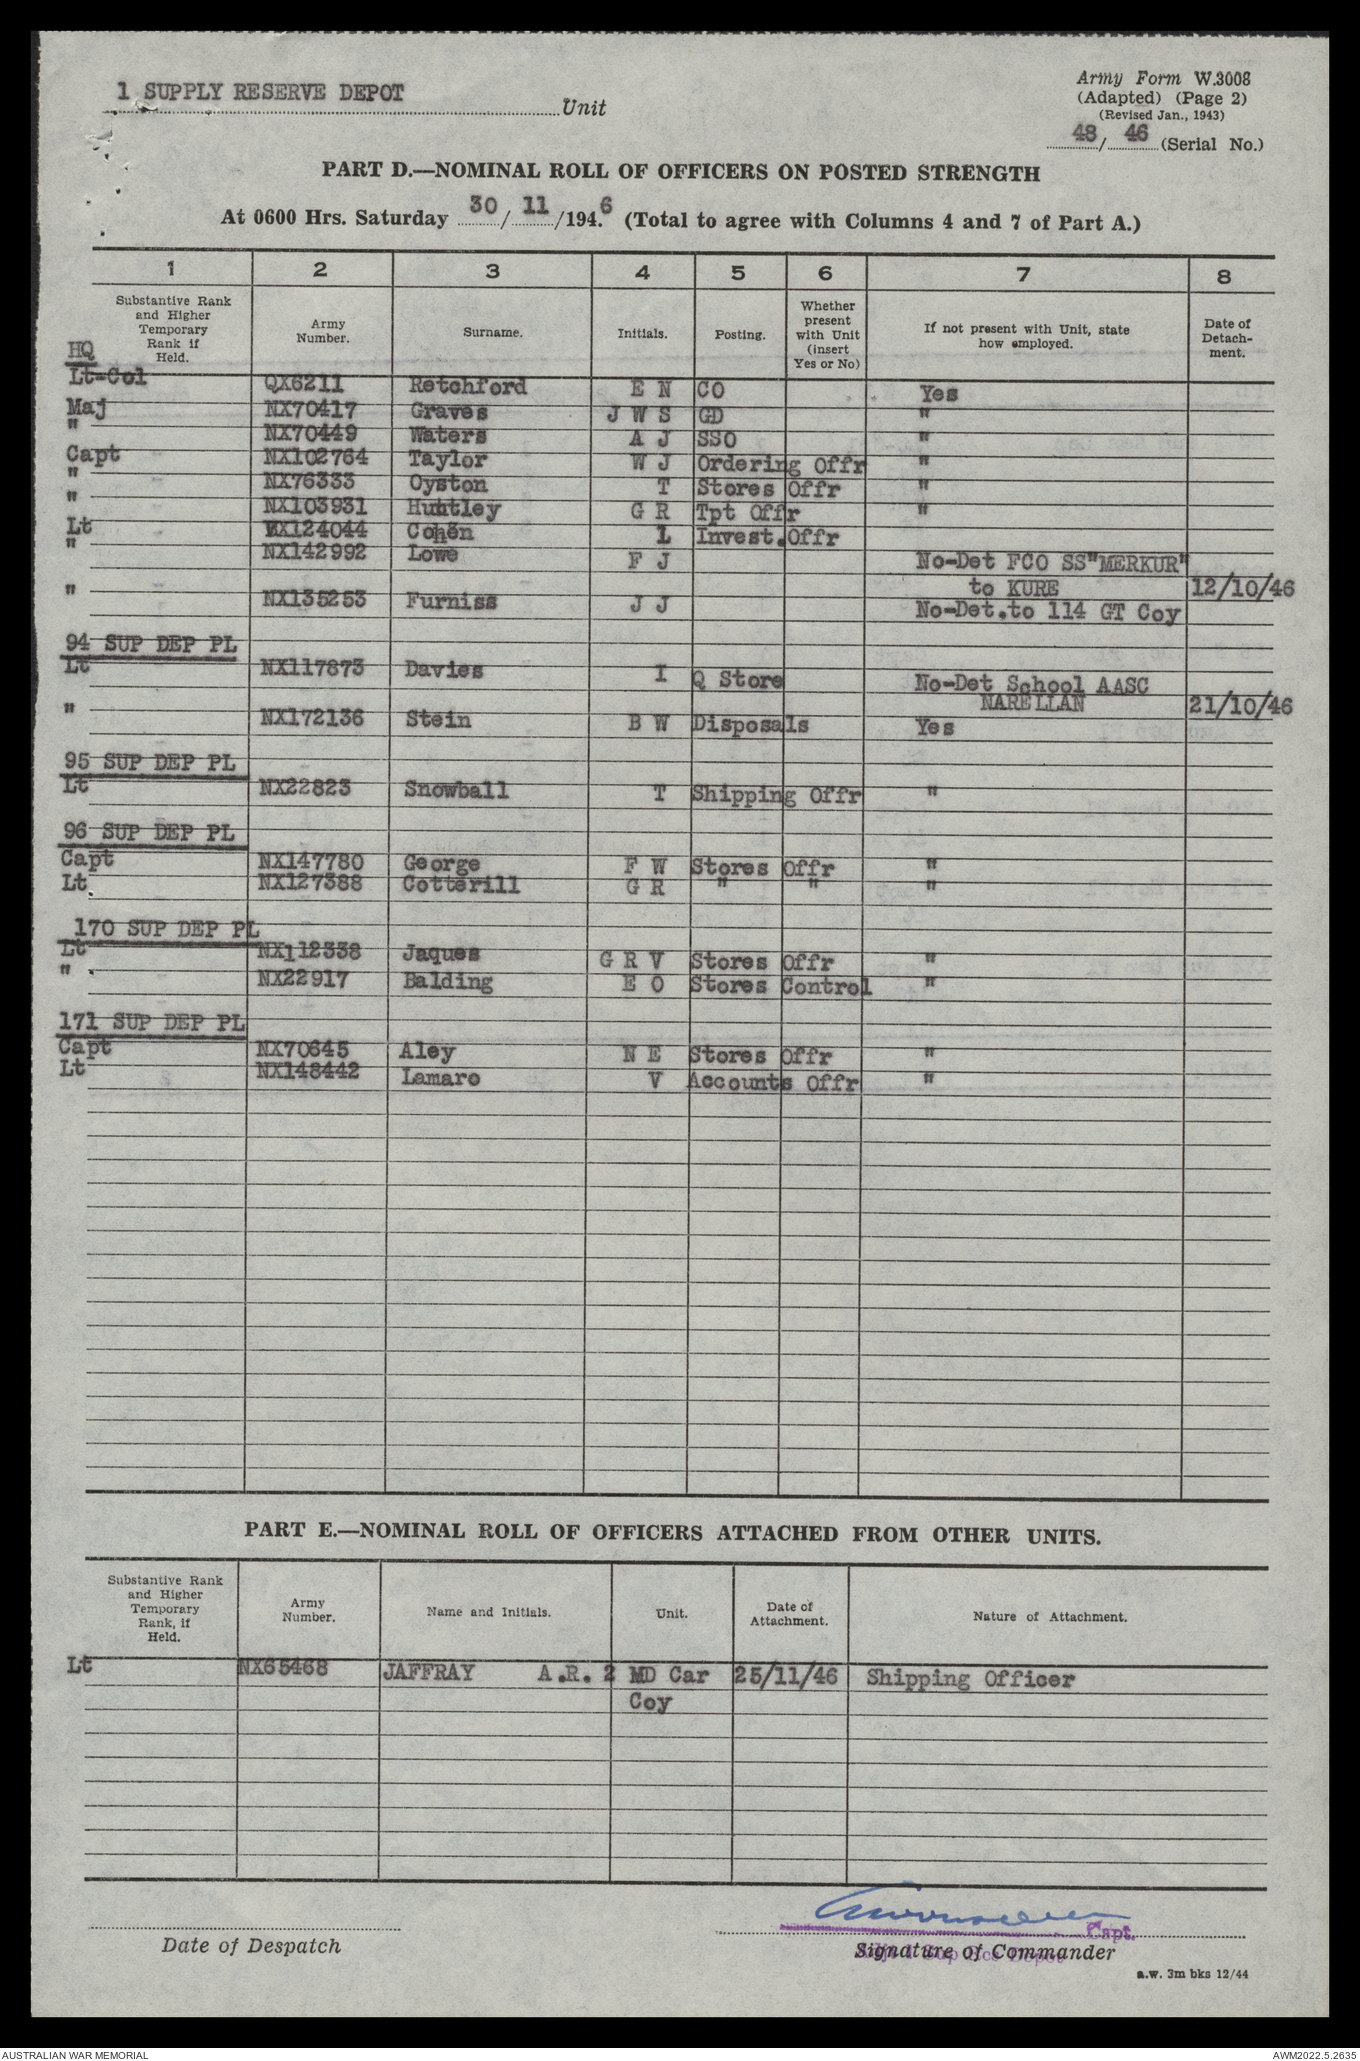 1 SUPPLY RESERVE DEPOT Unit
Army Form W.3008
(Adapted) (Page 2)
(Revised Jan., 1943)
48/ 46 (Serial No.)
PART D.—NOMINAL ROLL OF OFFICERS ON POSTED STRENGTH
At 0600 Hrs. Saturday 30/ 11/194.6 (Total to agree with Columns 4 and 7 of Part A.)
1 2 3 4 5 6 7 8
Substantive Rank and Higher Temporary Rank if Held. Army Number. Surname. Initials. Posting. Whether present with Unit (insert Yes or No) If not present with Unit, state how employed. Date of Detach- ment.
HQ
Lt-Col QX6211 Retchford E N CO Yes
Maj NX70417 Graves J W S GD "
" NX70449 Waters A J SSO "
Capt NX102764 Taylor W J Ordering Offr "
" NX76333 Oyston T Stores Offr "
" NX103931 Huntley G R Tpt Offr "
Lt X124044 Cohen L Invest.Offr
" NX142992 Lowe F J No-Det FCO SS"MERKUR"
to KURE 12/10/46
" NX135253 Furniss J J No-Det.to 114 GT Coy
94 SUP DEP PL
Lt NX117873 Davies I Q Store No-Det School AASC
NARELLAN 21/10/46
" NX172136 Stein B W Disposals Yes
95 SUP DEP PL
Lt NX22823 Snowball T Shipping Offr "
96 SUP DEP PL
Capt NX147780 George F W Stores Offr "
Lt. NX127388 Cotterill G R " " "
170 SUP DEP PL
Lt NX112338 Jaques G R V Stores Offr "
" . NX22917 Balding E O Stores Control "
171 SUP DEP PL
Capt NX70645 Aley N E Stores Offr "
Lt NX148442 Lamaro V Accounts Offr "
PART E.—NOMINAL ROLL OF OFFICERS ATTACHED FROM OTHER UNITS.
Substantive Rank and Higher Temporary Rank, if Held. Army Number. Name and Initials. Unit. Date of Attachment. Nature of Attachment.
Lt NX65468 JAFFRAY A.R. 2 MD Car 25/11/46 Shipping Officer
Coy
Capt.
Date of Despatch
Signature of Commander
a.w. 3m bks 12/44
AUSTRALIAN WAR MEMORIAL
AWM2022.5.2635